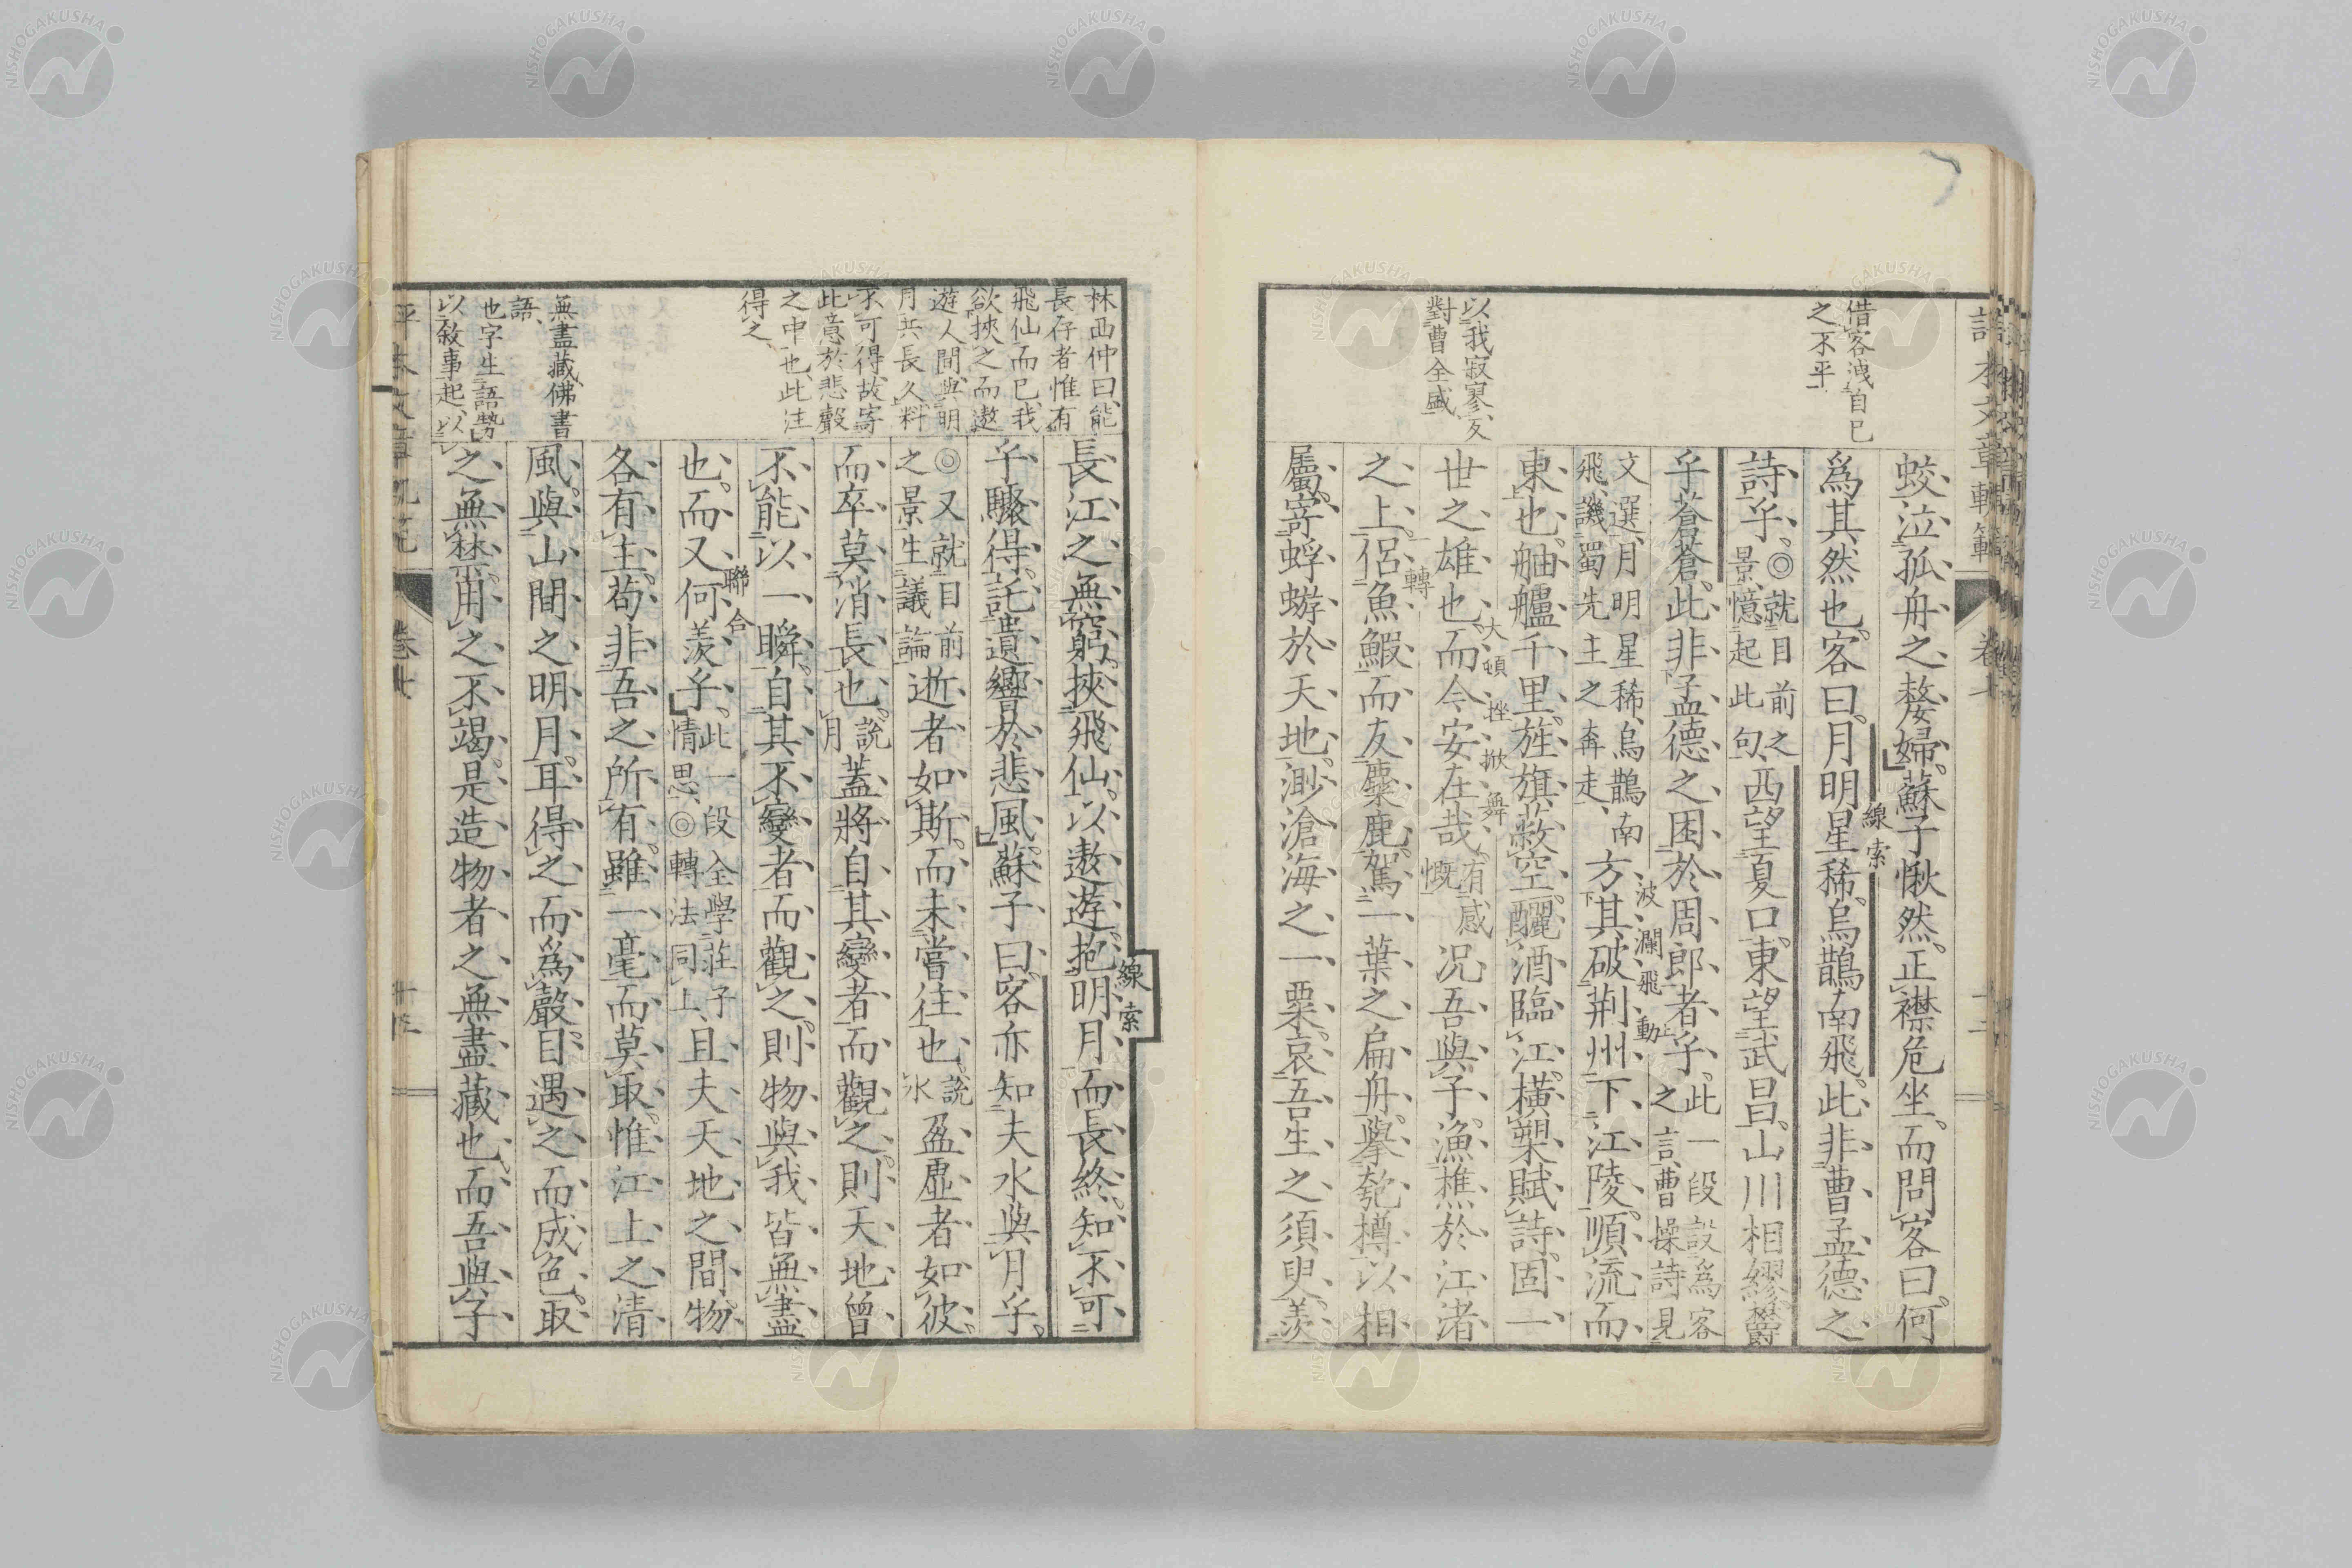 借客洩自己
之不平
以我寂寥反
對曹全盛
蛟泣孤舟之嫠婦。蘇子愀然。正襟危坐。而問客曰。何
爲其然也。客曰。月明星稀。烏鵲南飛。此非曹孟德之
線索
詩乎。◎就目前之景憶起此句、西望夏口。東望武昌。山川相繆。欝
乎蒼蒼。此非孟德之困於周郎者乎。此一段設爲客之言曹操詩見
波瀾飛動
文選、月明星稀、烏鵲南飛、譏蜀先主之奔走、方其破荆州。下江陵。順流而
東也。舳艫千里。旌旗蔽空。釃酒臨江。橫槊賦詩。固一
世之雄也。而今安在哉。有感慨况吾與子。漁樵於江渚
大頓挫掀舞
之上。侶魚鰕而友麋鹿。駕一葉之扁舟。擧匏樽以相
轉
屬。寄蜉蝣於天地。渺滄海之一粟。哀吾生之須臾。羨
卷七
林西仲曰、能
長存者惟有
飛仙而已、我
欲挾之而遨
遊人間、與明
月共長久、料
不可得、故寄
此意於悲聲
之中也、此注
得之
無盡藏佛書
語、
也字生語勢
以敘事起、以
長江之無窮。挾飛仙。以遨遊。抱明月而長終。知不可
線索
乎驟得。託遺響於悲風。蘇子曰。客亦知夫水與月乎。
◎又就目前之景生議論逝者如斯。而未嘗往也。說水盈虛者如彼。
而卒莫消長也。說月蓋將自其變者而觀之。則天地曾
不能以一瞬。自其不變者而觀之。則物與我皆無盡
也。而又何羨乎。此一段全學莊子情思、◎轉法同上、且夫天地之間。物
聯合
各有主。苟非吾之所有。雖一毫而莫取。惟江上之清
風。與山間之明月。耳得之而爲聲。目遇之而成色。取
之無禁。用之不竭。是造物者之無盡藏也。而吾與子